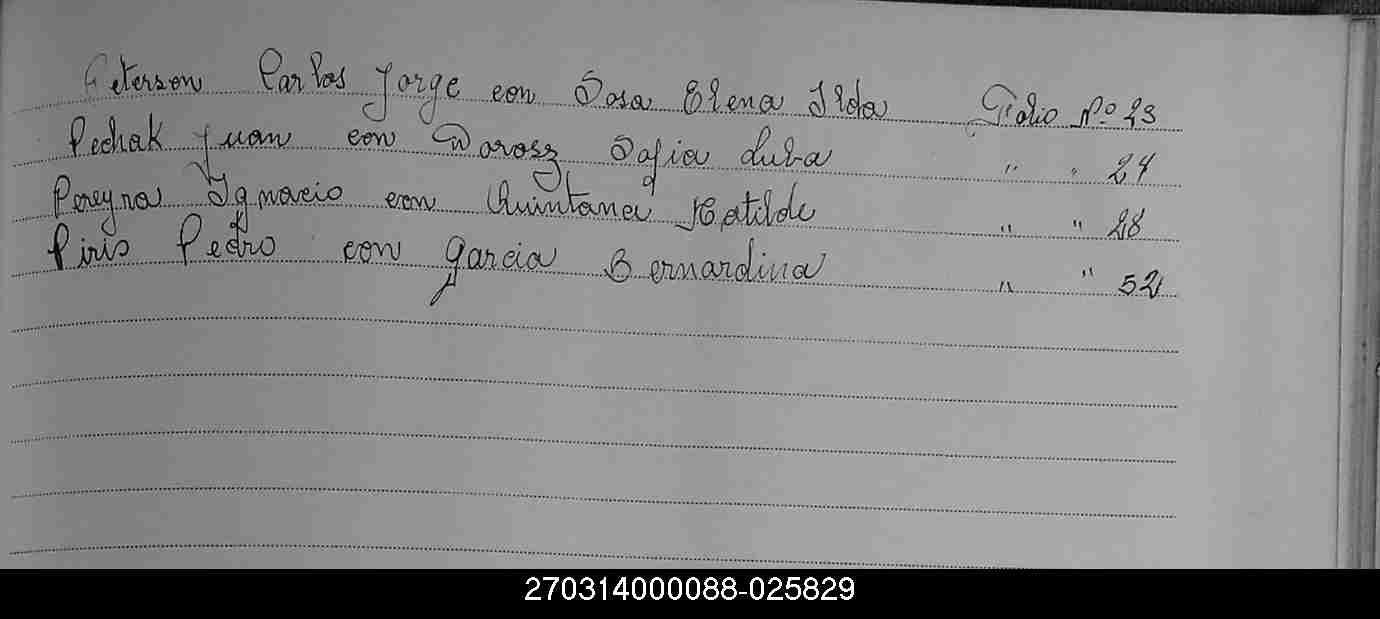 Peterson Carlos Jorge con Sosa Elena Ilda Folio Nº 23
Pechak Juan con Warosz Sofia Luba " " 24
Pereyra Ignacio con Quintana Matilde " " 28
Piris Pedro con Garcia Bernardina " " 52
270314000088-025829